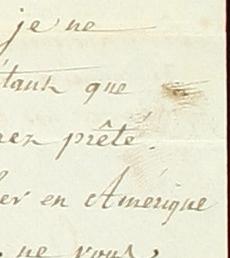 je ne
étant que
nez prêté.
er en Amérique
ne vous,